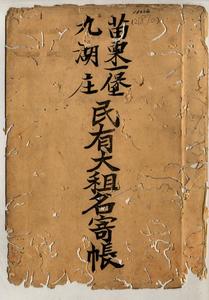 苗栗一堡
九湖庄
民有大租名寄帳